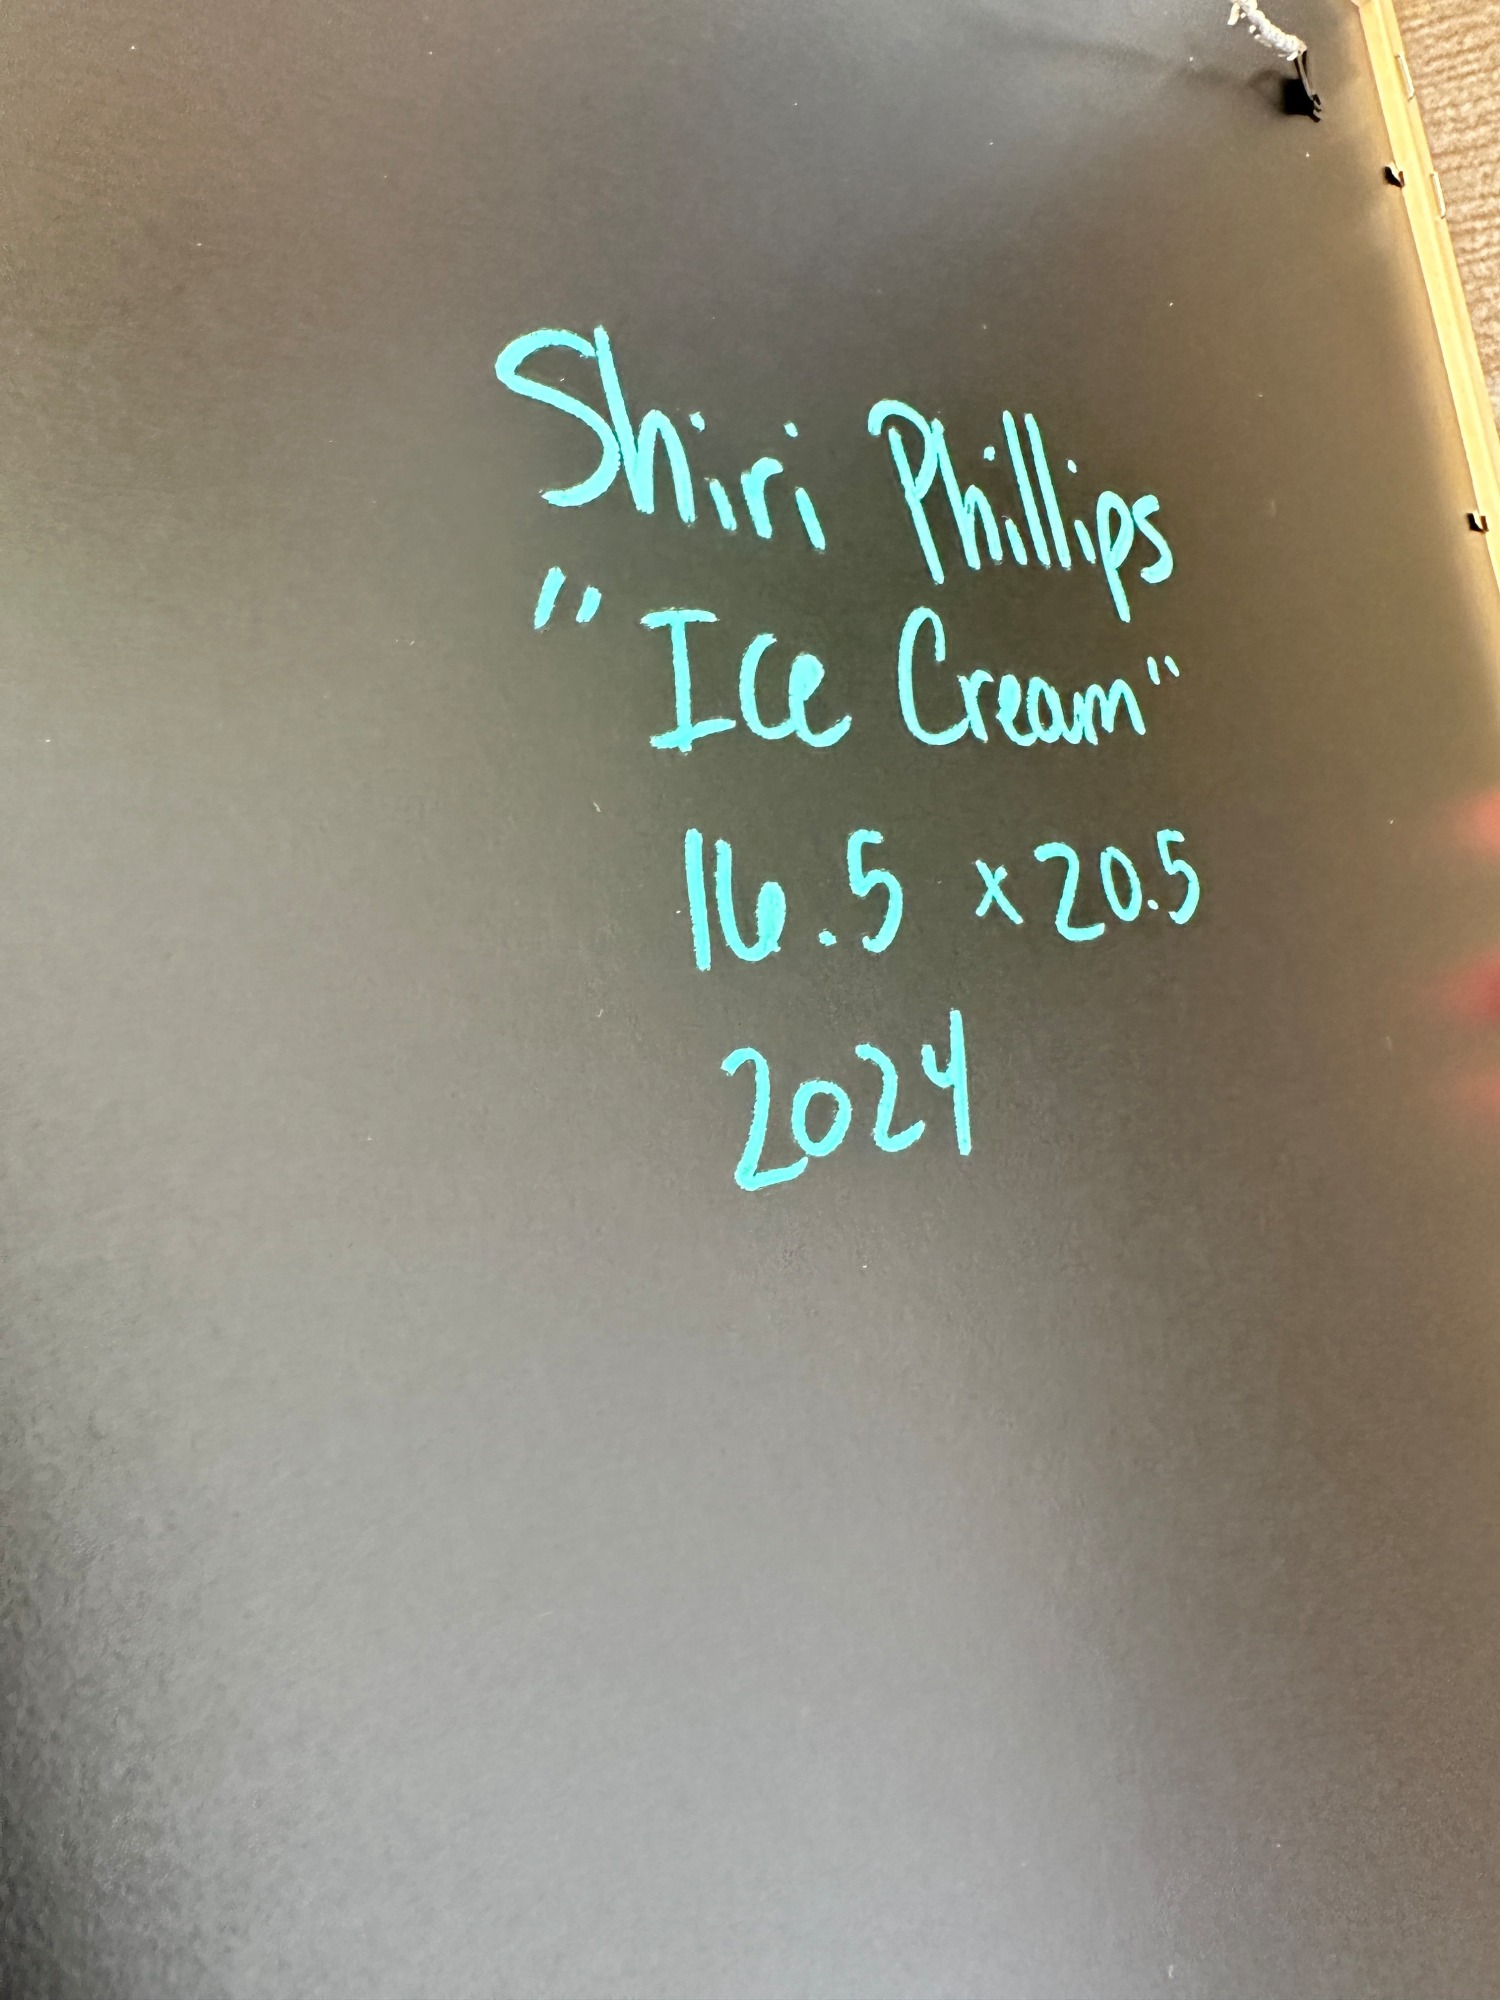 Shiri Phillips
"Ice Cream"
16.5 x 20.5
2024